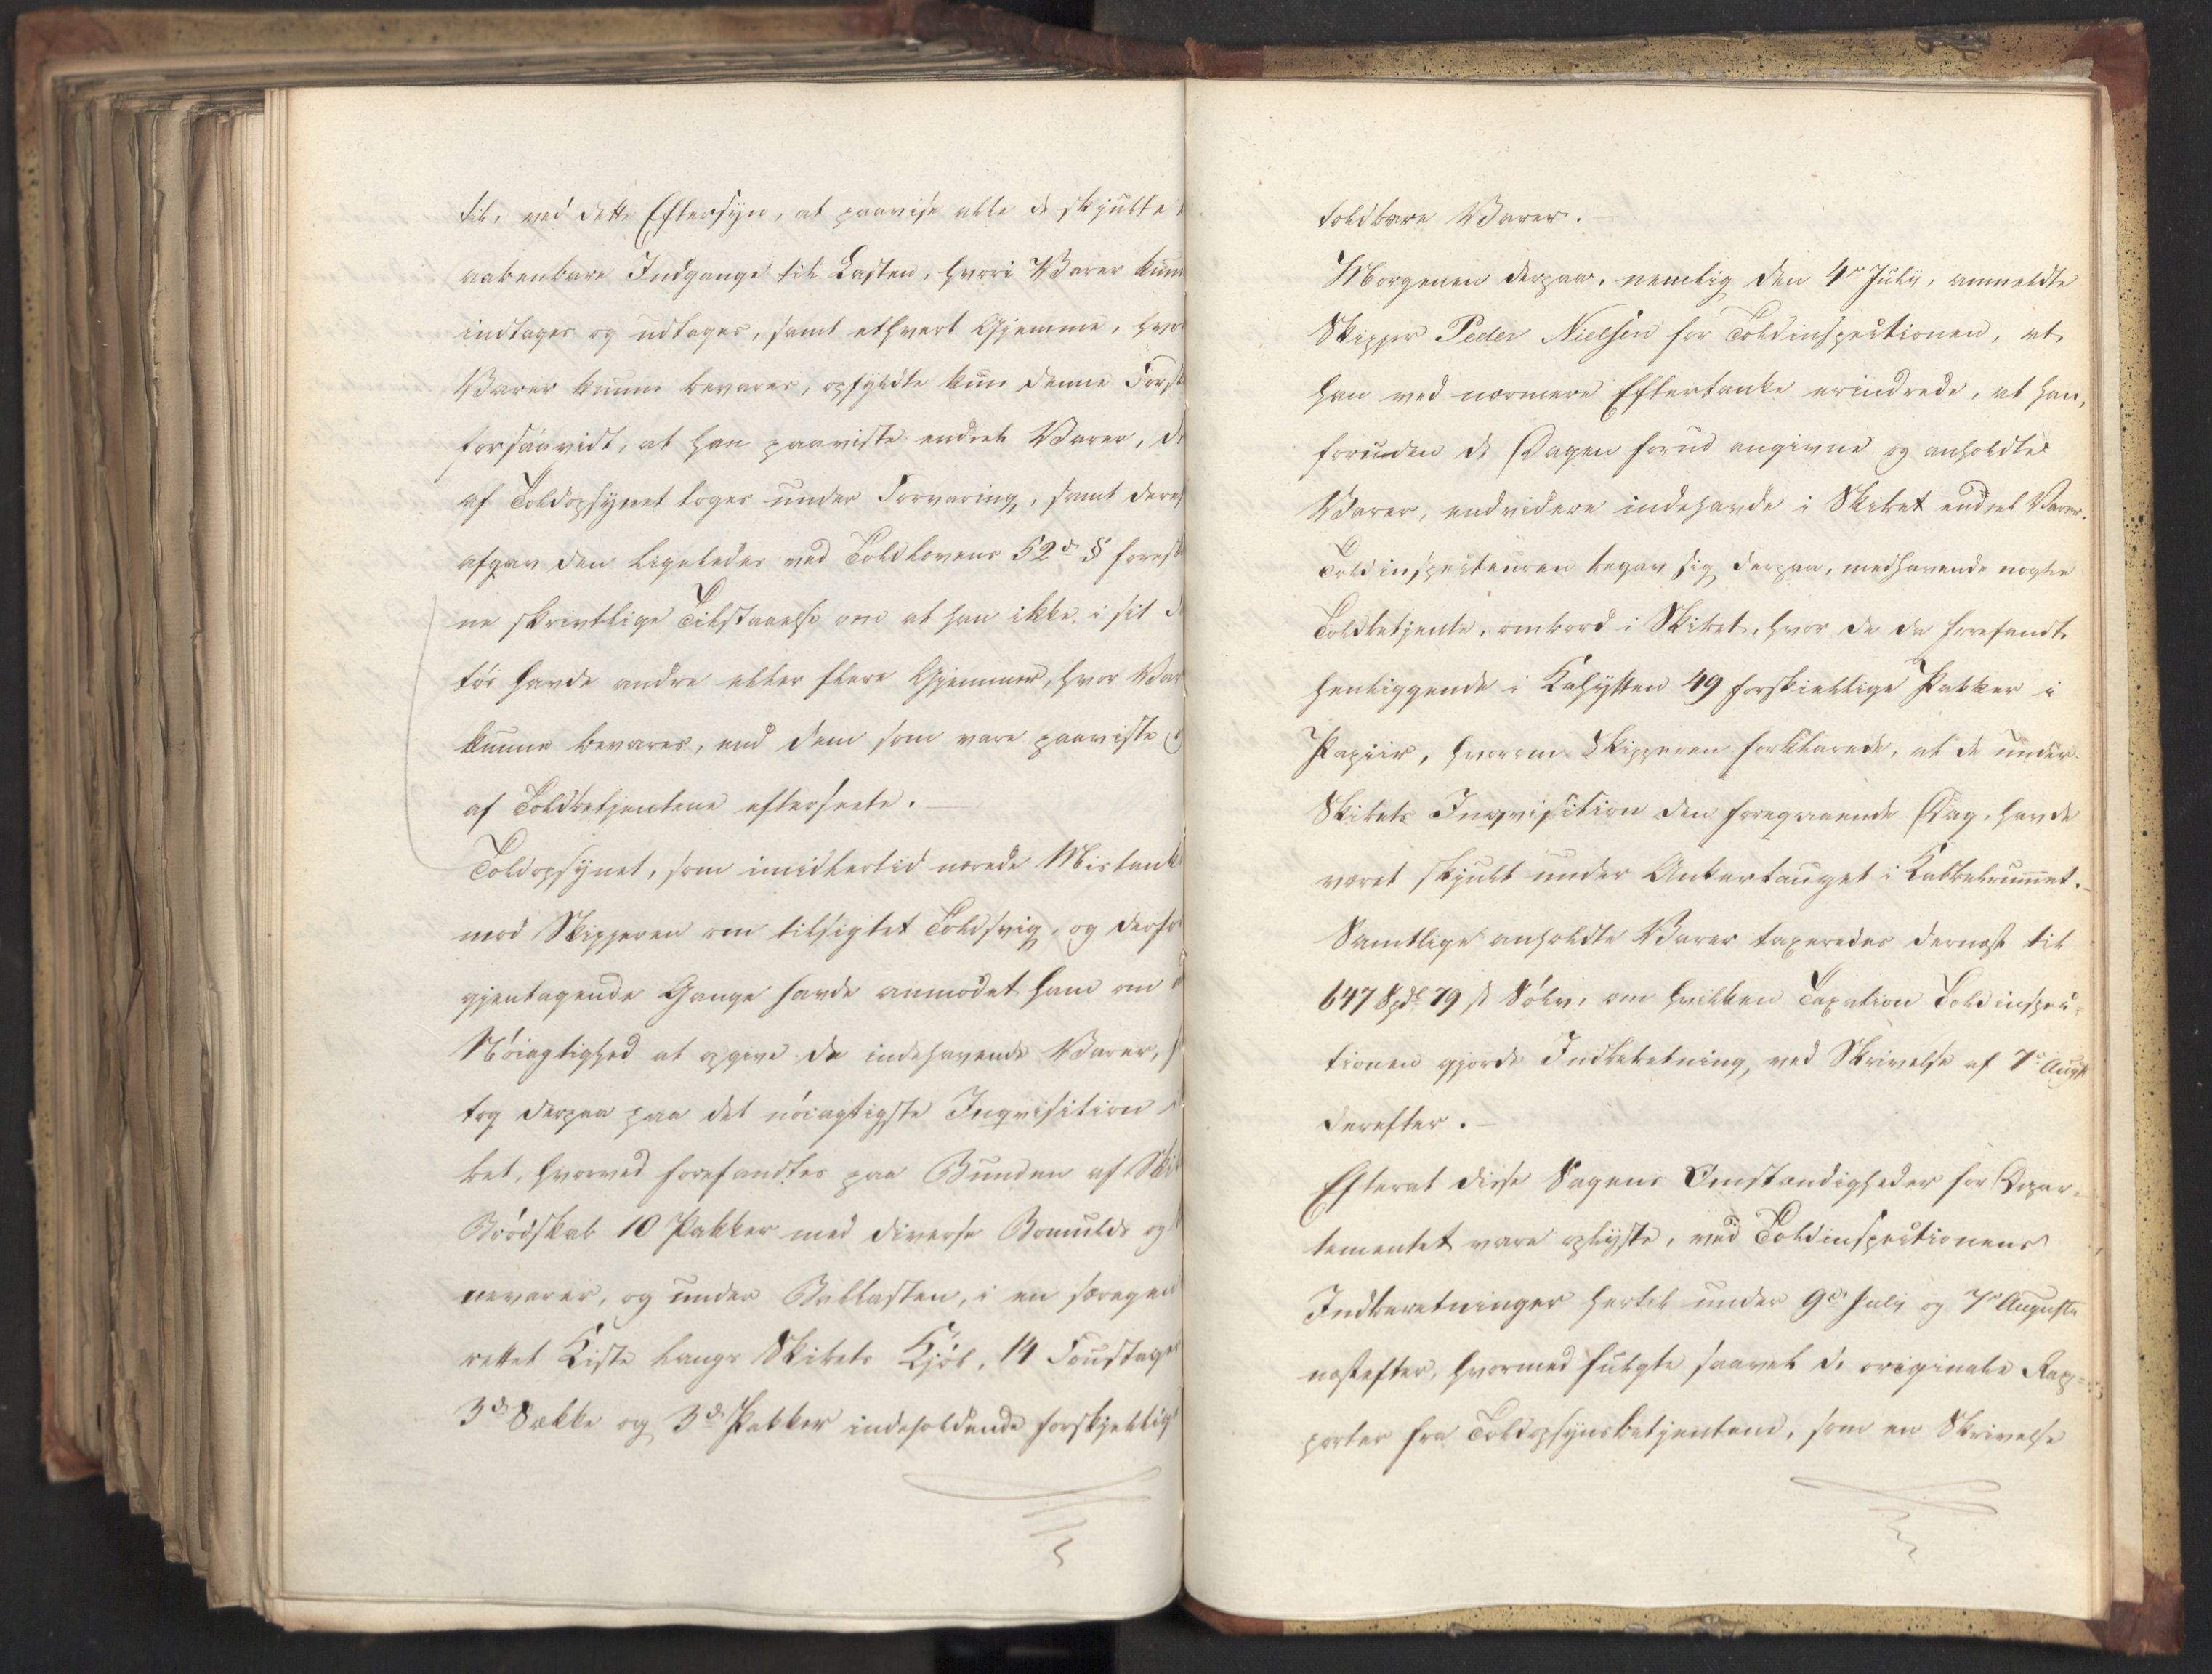 til, ved dette Eftersyn, at paavise alle de skjulte e
aabenbare Indgange til Lasten, hvori Varer kunn
indtages og udtages, samt ethvert Gjemme, hvo
Varer kunne bevares, opfyldte kun denne Forsk
forsaavidt, at han paaviste endeel Varer, de
af Toldopsynet toges under Forvaring, samt deres
afgav den ligeledes ved Toldlovens 52de § foresk
ne skrivtlige Tilstaaelse om at han ikke i sit
töi havde andre eller flere Gjemmer, hvor Var
kunne bevares, end dem som vare paaviste o
af Toldbetjentene efterseete.
Toldopsynet, som imidlertid nærede Mistank
mod Skipperen om tilsigtet Toldsvig, og derfo
gjentagende Gange havde anmodet ham om
Nöiagtighed at opgive de indehavende Varer,
tog derpaa paa det nöiagtigste Inqvisition
bet, hvorved forefandtes paa Bunden af Ski
Brödskab 10 Pakker med diverse Bomulds og
nevarer, og under Ballasten, i en særegen
rettet Kiste langs Skibets Kjöl, 14 Foustager
3de Sække og 3de Pakker indeholdende forskjellig
toldbare Varer.
Morgenen derpaa, nemlig den 4de July, anmeldte
Skipper Peder Nielsen for Toldinspectionen, at
han ved nærmere Eftertanke erindrede, at han,
foruden de Dagen forud angivne og anholdte
Varer, endvidere indehavde i Skibet endeel Varer.
Toldinspecteuren begav sig derpaa, medhavende nogle
Toldbetjente, ombord i Skibet, hvor de da forefandt
henliggende i Kahytten 49 forskiellige Pakker i
Papiir, hvorom Skipperen forklarede, at de under
Skibets Inqvisition den foregaaende Dag, havde
været skjult under Ankertauget i Kabbelrummet.
Samtlige anholdte Varer taxeredes dernæst til
647 Spd 79 s Sölv, om hvilken Taxation Toldinspec-
tionen gjorde Indberetning, ved Skrivelse af 7de Augst
derefter.
Efterat disse Sagens Omstændigheder for Depar-
tementet vare oplyste, ved Toldinspectionens
Indberetninger hertil under 9de July og 7de Auguste
næstefter, hvormed fulgte saavel de originale Rap-
porter fra Toldopsynsbetjentene, som en Skrivelse